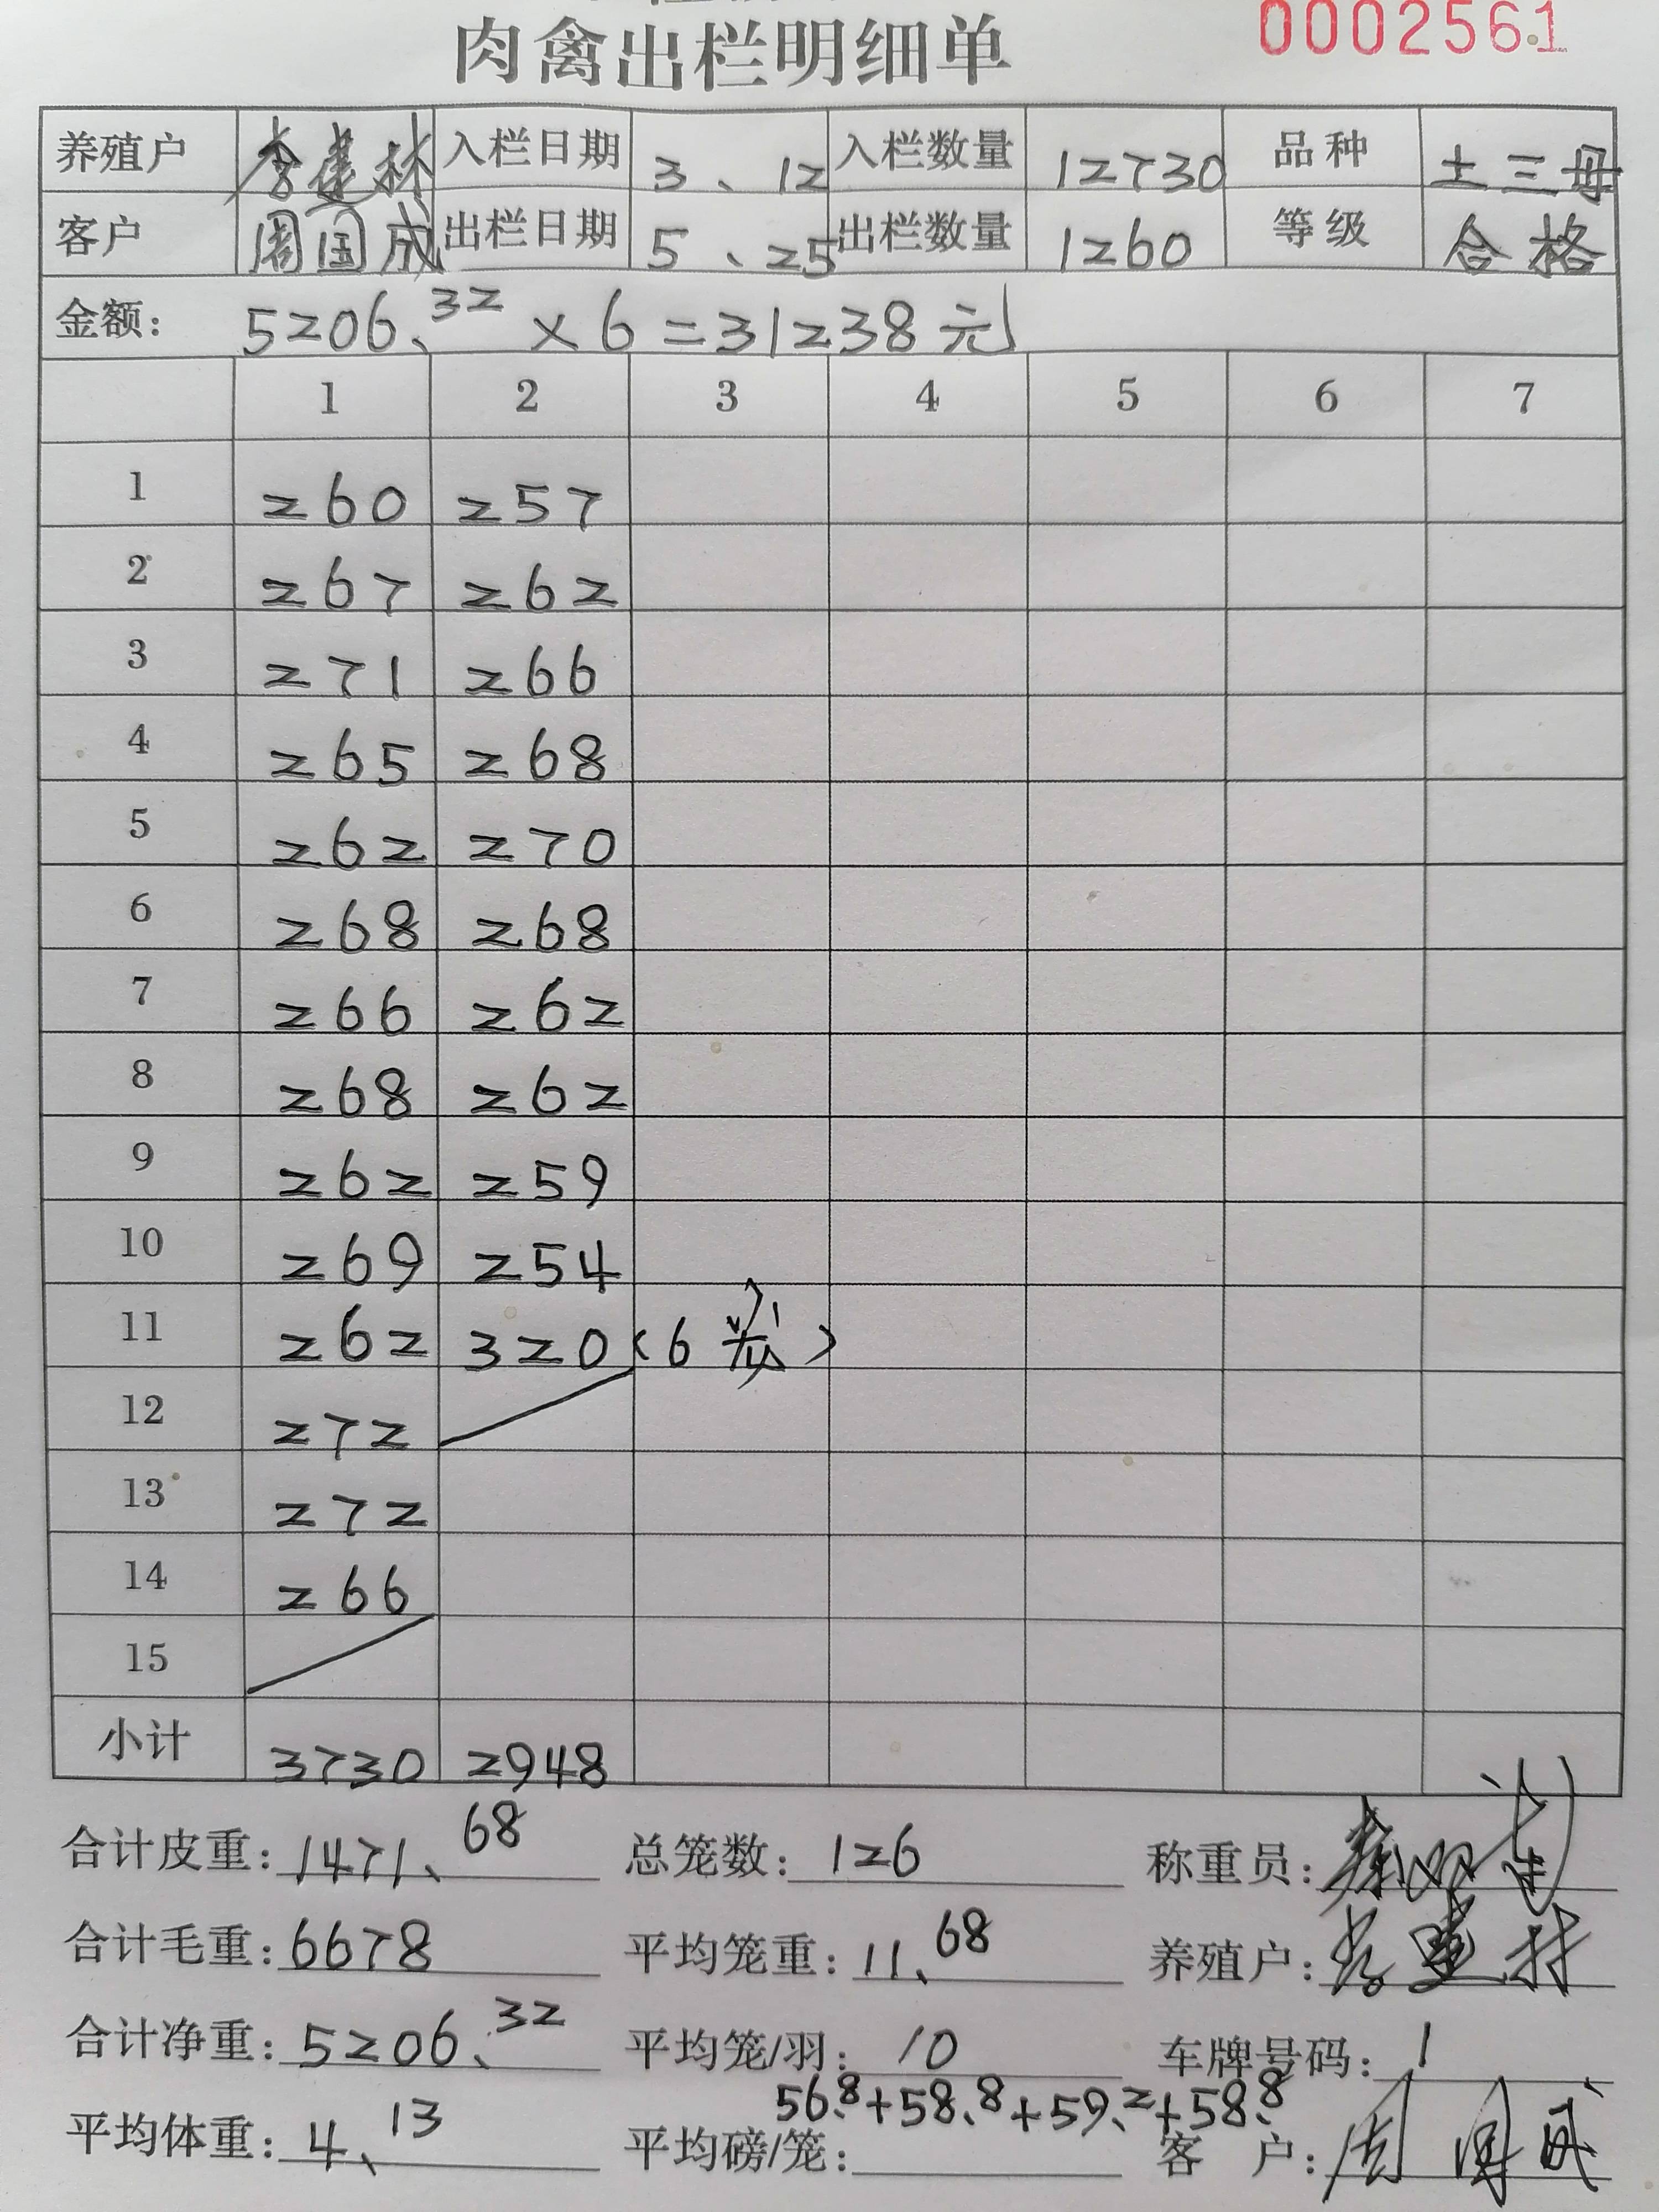 肉禽出栏明细单 0002561
养殖户 李建林 入栏日期 3、12 入栏数量 12730 品种 土三母
客户 周国成 出栏日期 5、25 出栏数量 1260 等级 合格
金额: 5206、32 × 6 = 31238元
1 2 3 4 5 6 7
1 260 257
2 267 262
3 271 266
4 265 268
5 262 270
6 268 268
7 266 262
8 268 262
9 262 259
10 269 254
11 262 320 (6笼)
12 272
13 272
14 266
15
小计 3730 2948
合计皮重: 1471、68 总笼数: 126 称重员:
合计毛重: 6678 平均笼重: 11、68 养殖户: 李建林
合计净重: 5206、32 平均笼/羽: 10 车牌号码: 1
56、8+58、8+59、2+58、8
平均体重: 4、13 平均磅/笼: 客户: 周国成